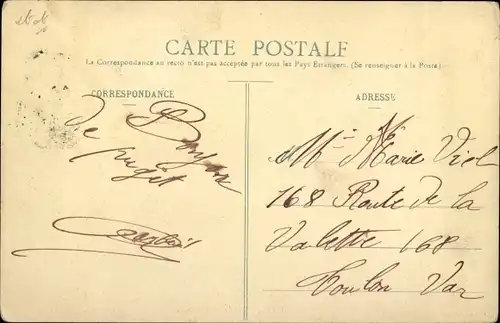 CARTE POSTALE
La Correspondance au recto n'est pas acceptée par tous les Pays Etrangers. (Se renseigner à la Poste)
CORRESPONDANCE
ADRESSE
de
Mlle Marie Viol
168 Route de la
Valette 168
Toulon Var